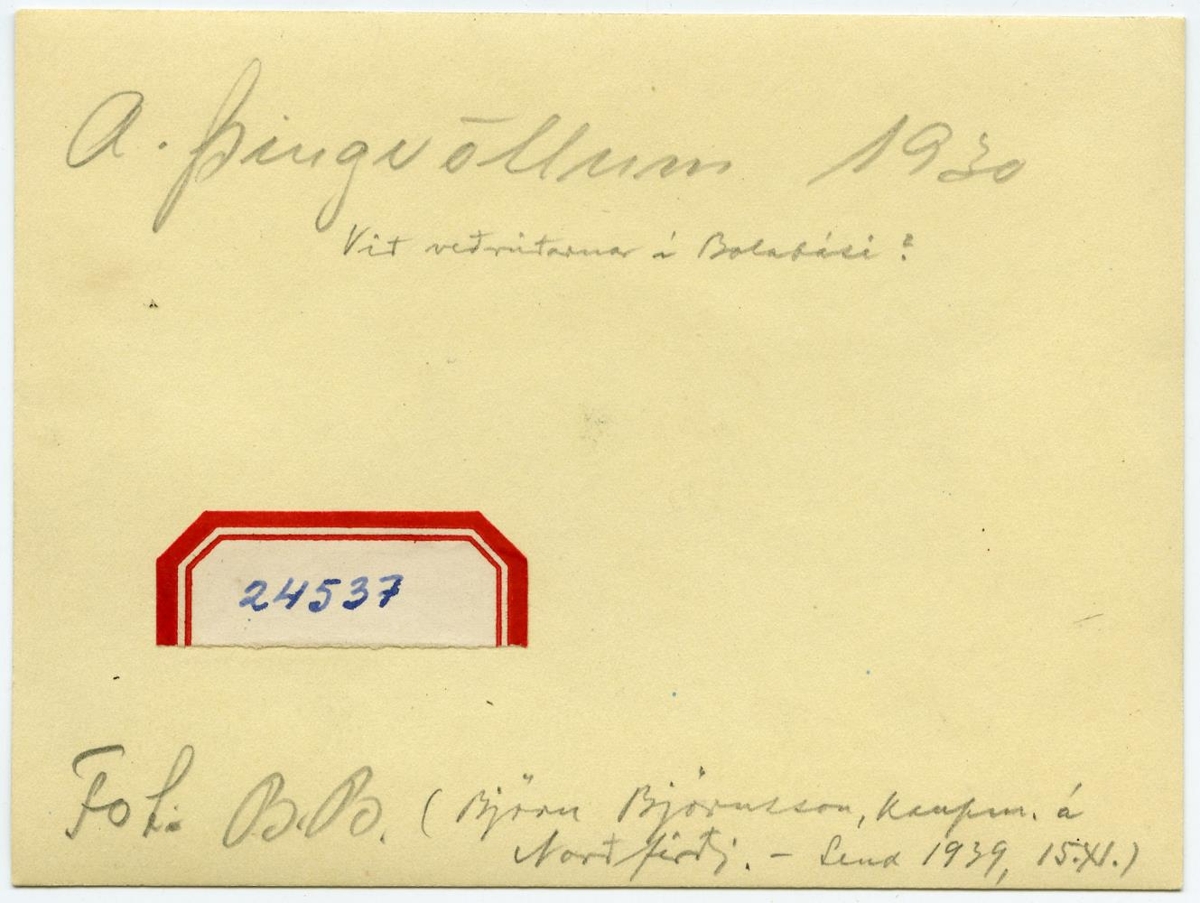 A. Þingvöllum 1930
Við veðrúðarnar á Bolabási?
24537
Fot: B.B. (Björn Björnsson, kaupm. á
Norðfirði. – Send 1939, 15.XI.)